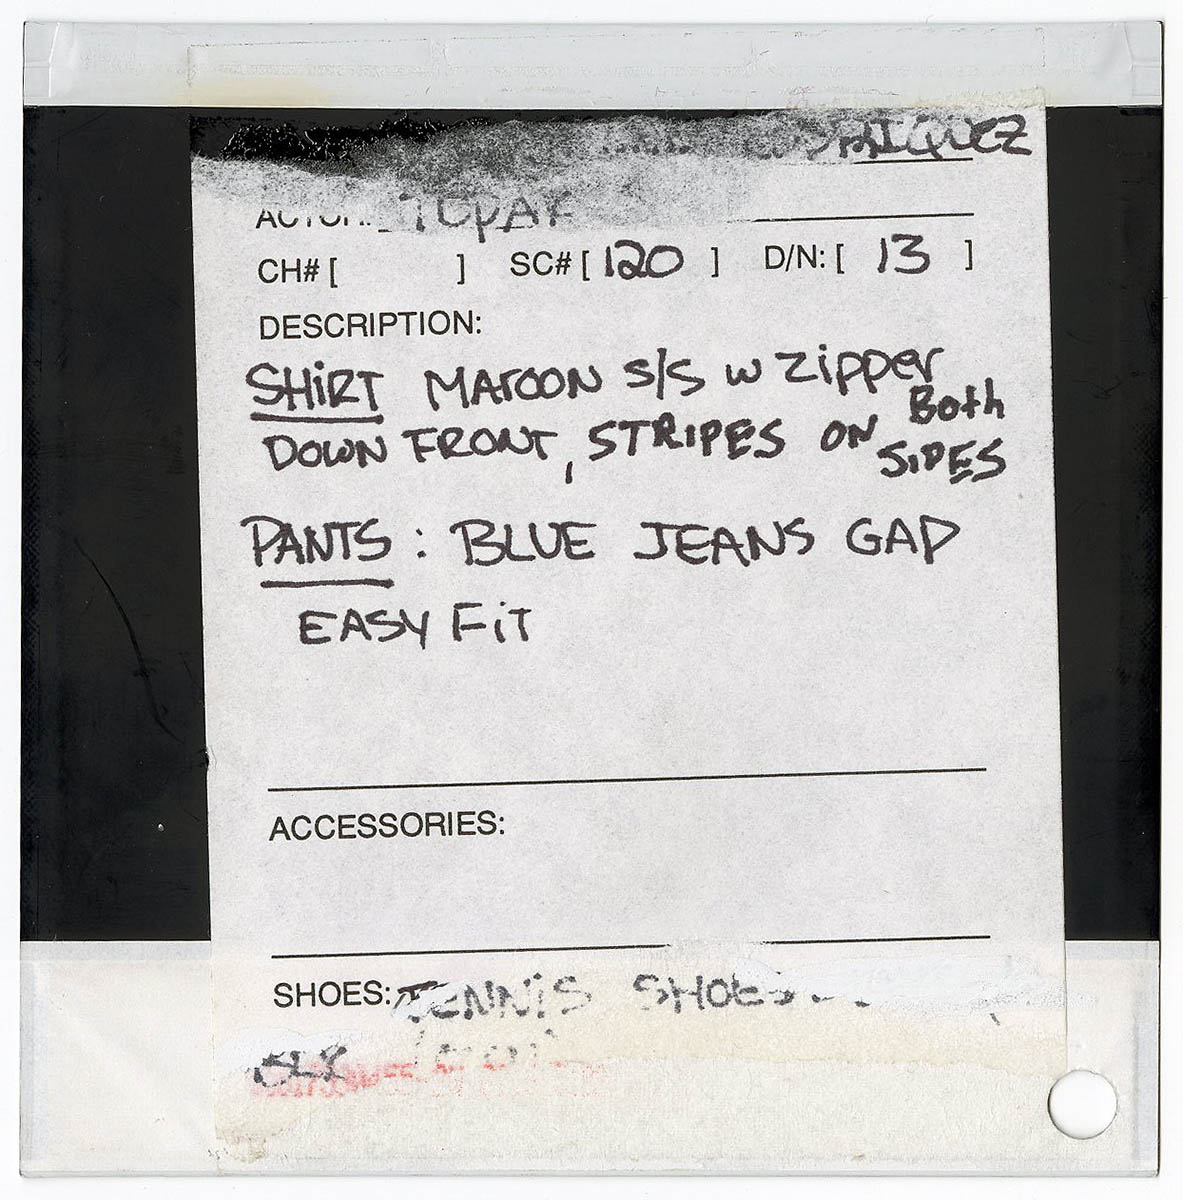 RIQUEZ
ACTOR:
CH# [ ] SC# [ 120 ] D/N: [ 13 ]
DESCRIPTION:
SHIRT MAROON S/S W ZIPPER
DOWN FRONT, STRIPES ON BOTH
SIDES
PANTS : BLUE JEANS GAP
EASY FIT
ACCESSORIES:
SHOES: TENNIS SHOES